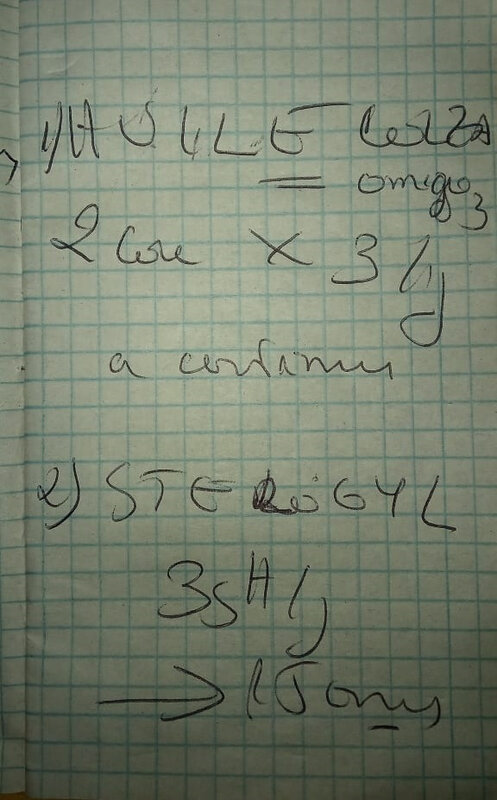 1) HUILE Colza
omega 3
2 cue x 3 / j
a continuer
2) STEROGYL
35 / j
→ 15 jours